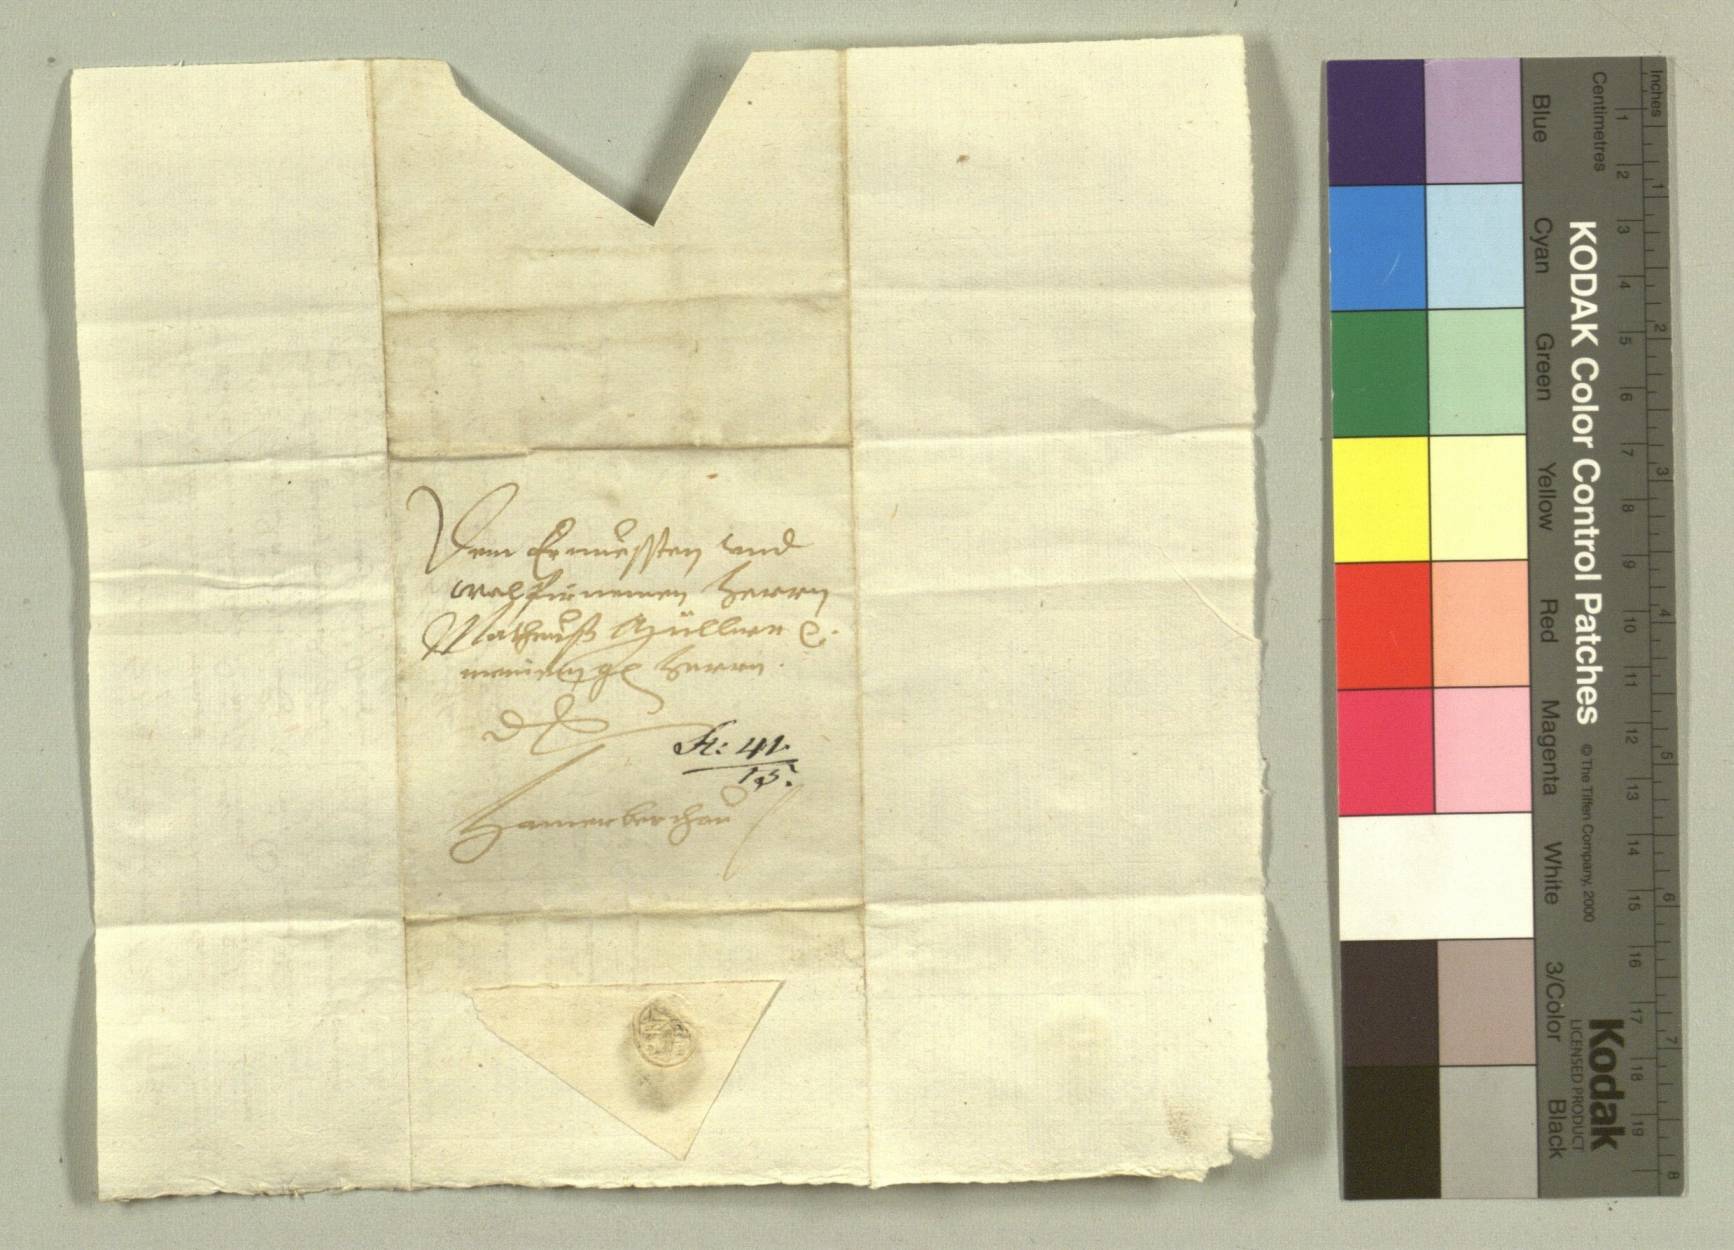 Dem Ernuessten und
wolfürnemen Herrn
Matheuß Müllner &.
meinem gl Herrn.
St: 41.
15.
Hamerberchau
KODAK Color Control Patches
© The Tiffen Company, 2000
Kodak
LICENSED PRODUCT
Inches
1
2
3
4
5
6
7
8
Centimetres
1
2
3
4
5
6
7
8
9
10
11
12
13
14
15
16
17
18
19
Blue
Cyan
Green
Yellow
Red
Magenta
White
3/Color
Black